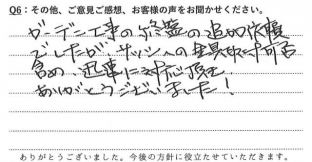 Q6：その他、ご意見ご感想、お客様の声をお聞かせください。
ガーデン工事の終盤の追加依頼
でしたが、サッシへの金具取付可否
含め、迅速に対応頂き
ありがとうございました！
ありがとうございました。今後の方針に役立たせていただきます。